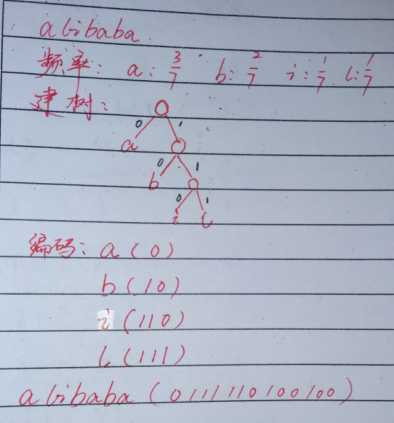 alibaba
频率: a: 3/7 b: 2/7 i: 1/7 l: 1/7
建树:
0 1
a
0 1
b
0 1
i l
编码: a (0)
b (10)
i (110)
l (111)
alibaba (0111110100100)